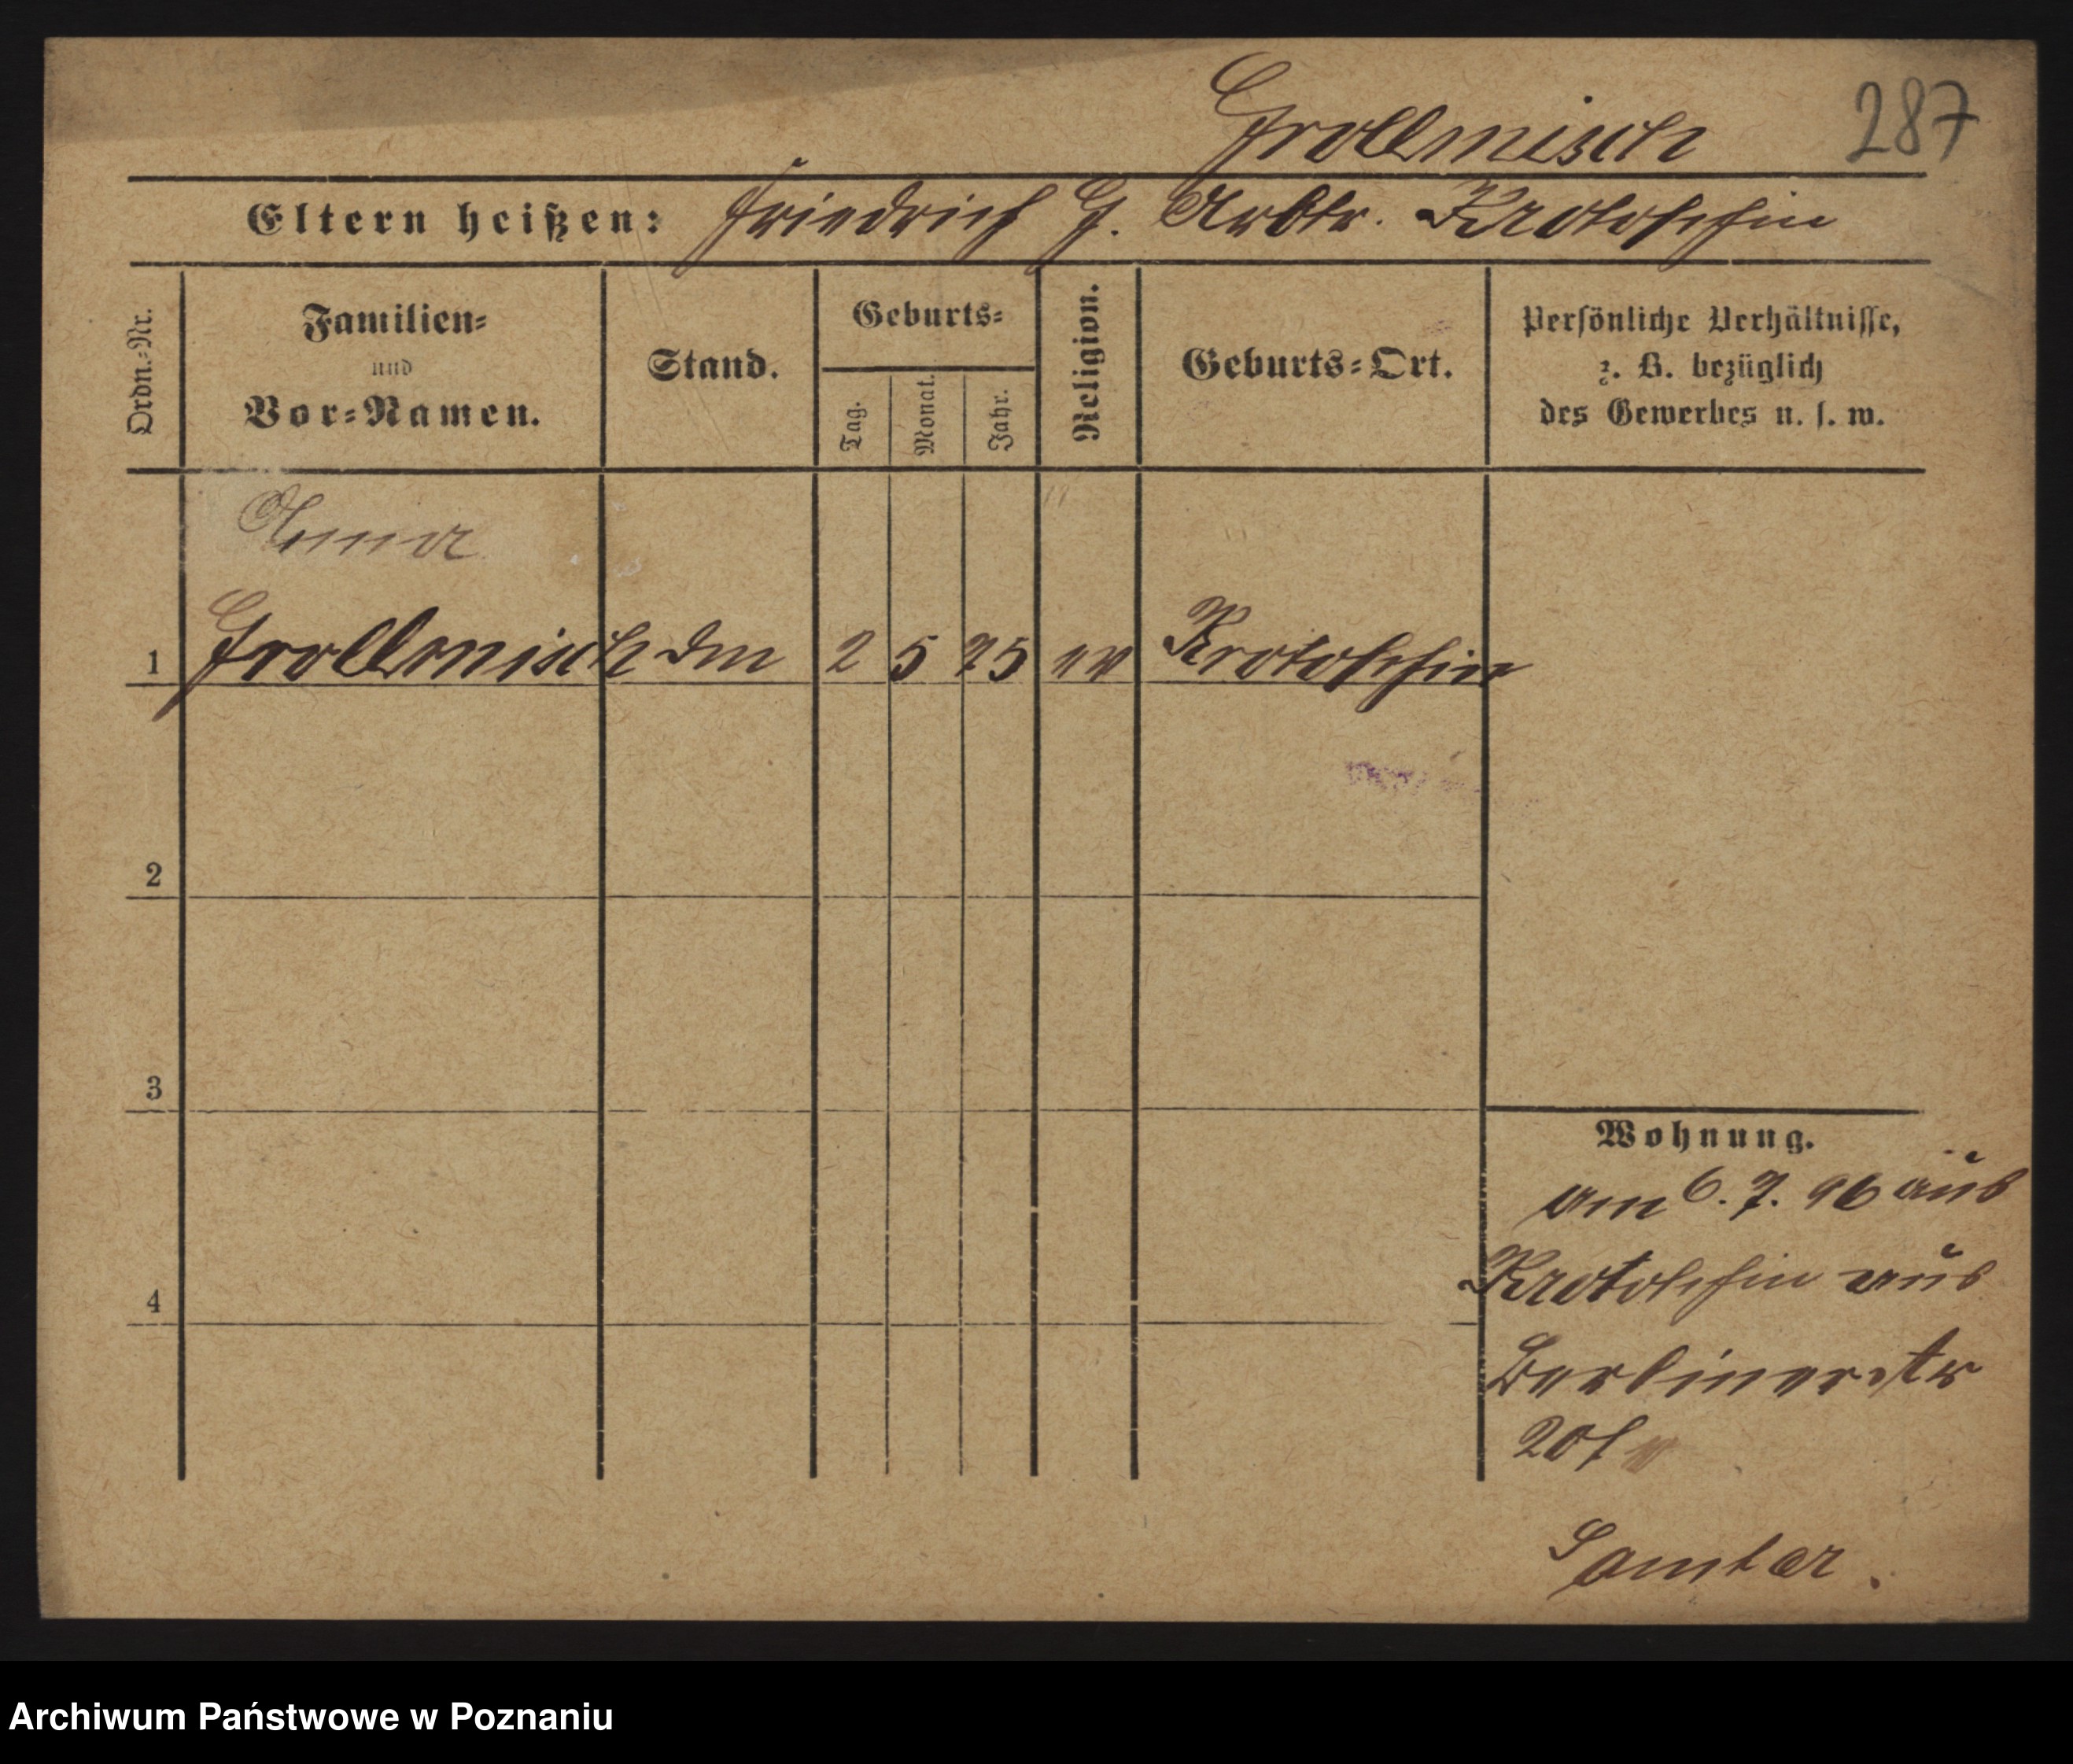 Grollmisch 287
Eltern heißen: Friedrich G. Arbtr. Krotoschin
Ordn.-Nr.
Familien-
und
Vor-Namen.
Stand.
Geburts-
Tag.
Monat.
Jahr.
Religion.
Geburts-Ort.
Persönliche Verhältnisse,
z. B. bezüglich
des Gewerbes u. s. w.
Anna
1 Grollmisch 2 5 75 ev Krotoschin
2
3
4
Wohnung.
am 6. 7. 96 aus
Krotoschin aus
Berlinerstr
20
Samter.
Archiwum Państwowe w Poznaniu